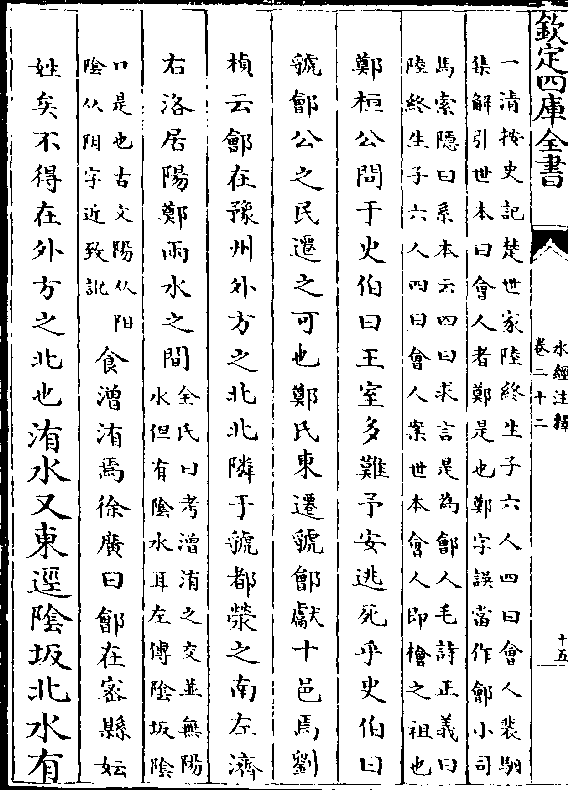 欽定四庫全書
水經注釋
卷二十二
十五
一清按史記楚世家陸終生子六人四曰會人裴駰
集解引世本曰會人者鄭是也鄭字誤當作鄶小司
馬索隱曰系本云四曰求言是為鄶人毛詩正義曰
陸終生子六人四曰會人案世本會人即檜之祖也
鄭桓公問于史伯曰王室多難予安逃死乎史伯曰
虢鄶公之民遷之可也鄭氏東遷虢鄶獻十邑焉劉
楨云鄶在豫州外方之北北隣于虢都滎之南左濟
右洛居陽鄭兩水之間
全氏曰考潧洧之交並無陽
水但有陰水耳左傳陰坂陰
口是也古文陽从阳
陰从阴字近致訛
食潧洧焉徐廣曰鄶在密縣妘
姓矣不得在外方之北也洧水又東逕陰坂北水有